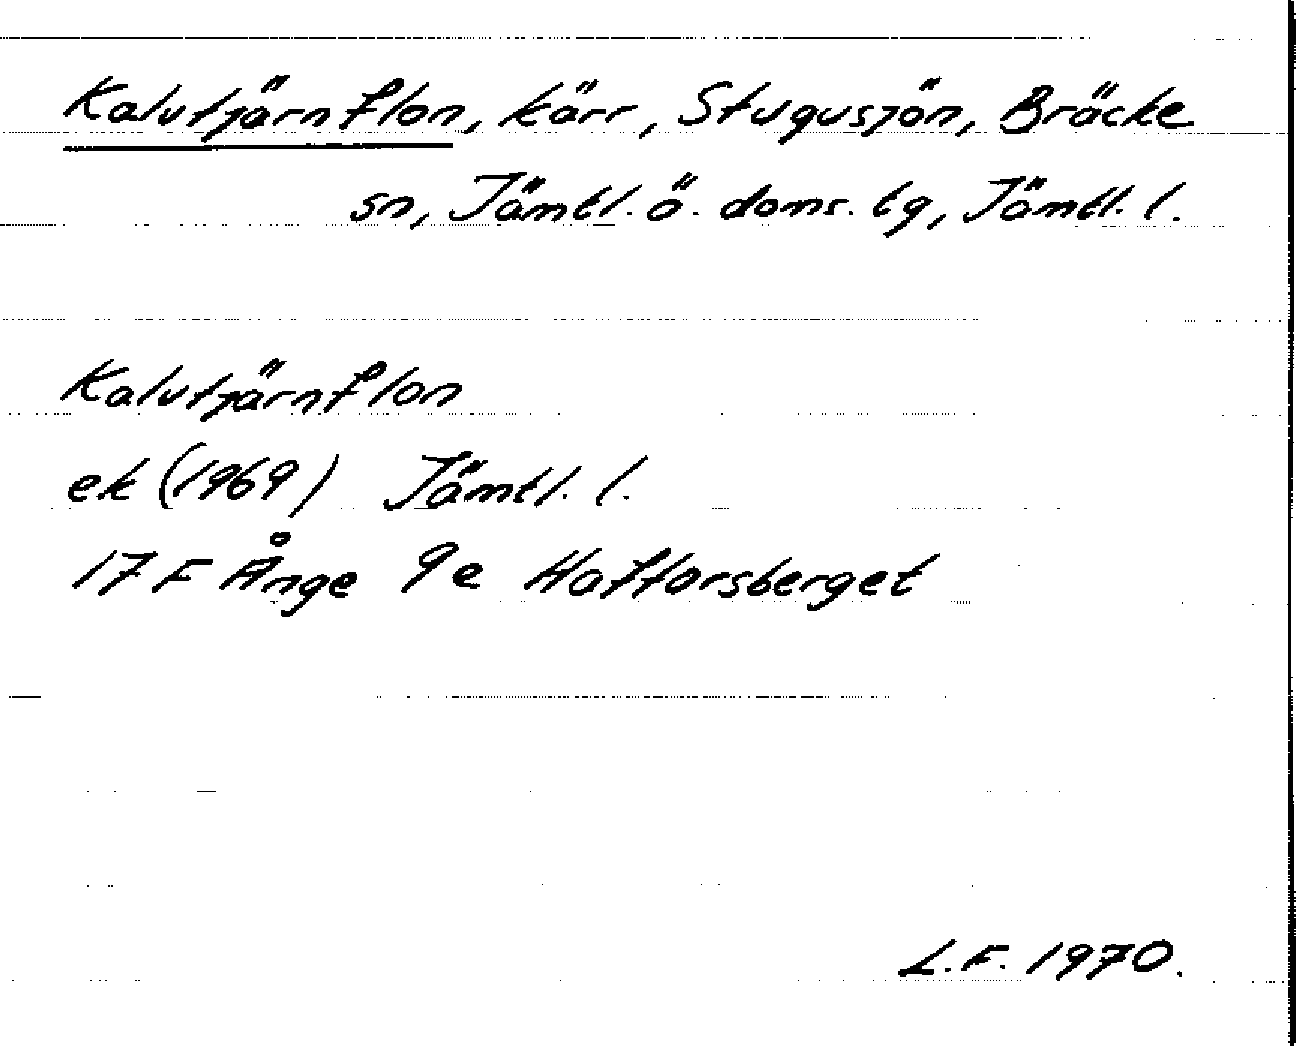 Kalvtjärnflon, kärr, Stugusjön, Bräcke
sn, Jämtl. ö. doms. tg, Jämtl. l.
Kalvtjärnflon
ek (1969) Jämtl. l.
17 F Ånge 9e Haftorsberget
L.F. 1970.